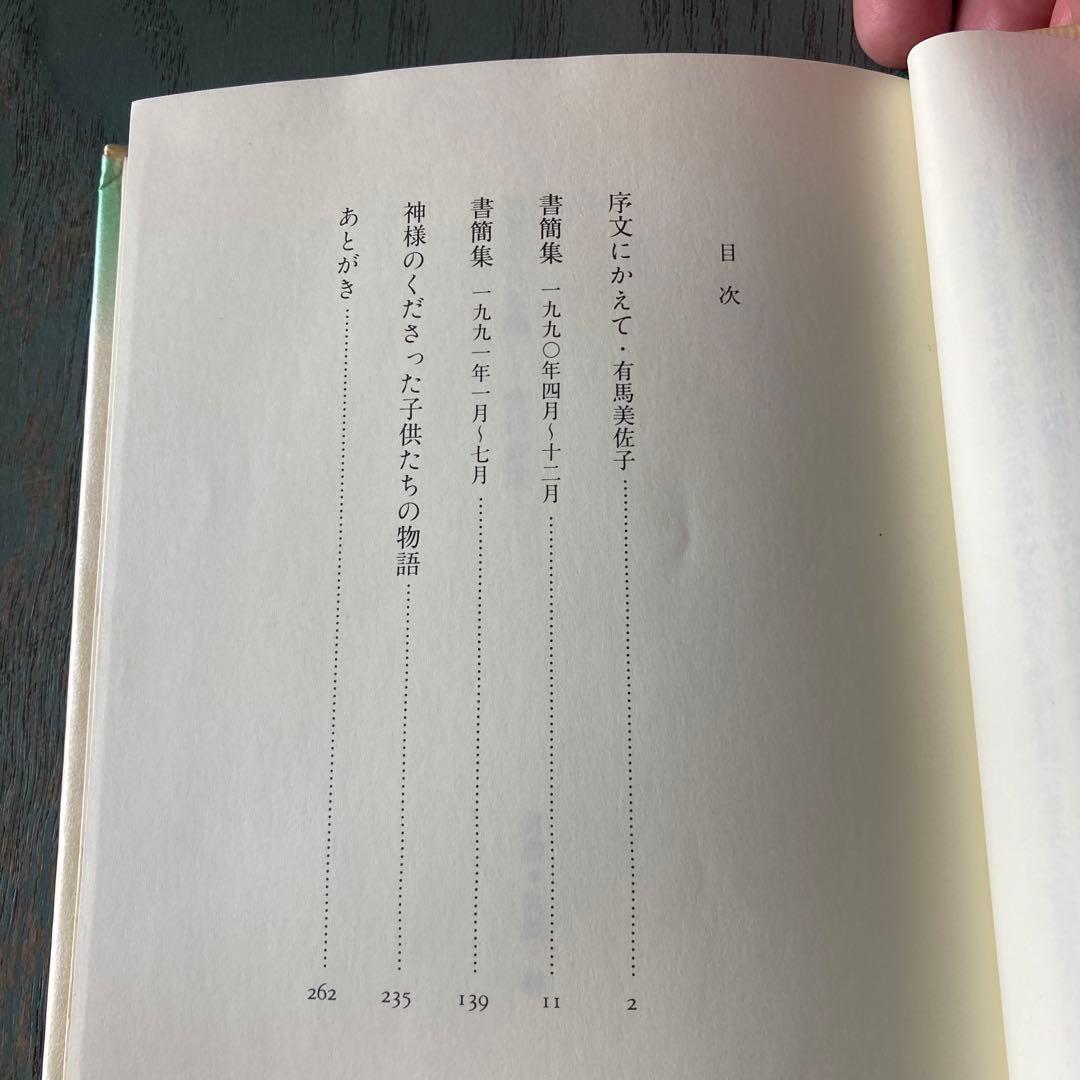 目次
序文にかえて・有馬美佐子……………2
書簡集 一九九〇年四月～十二月……………11
書簡集 一九九一年一月～七月……………139
神様のくださった子供たちの物語……………235
あとがき……………262